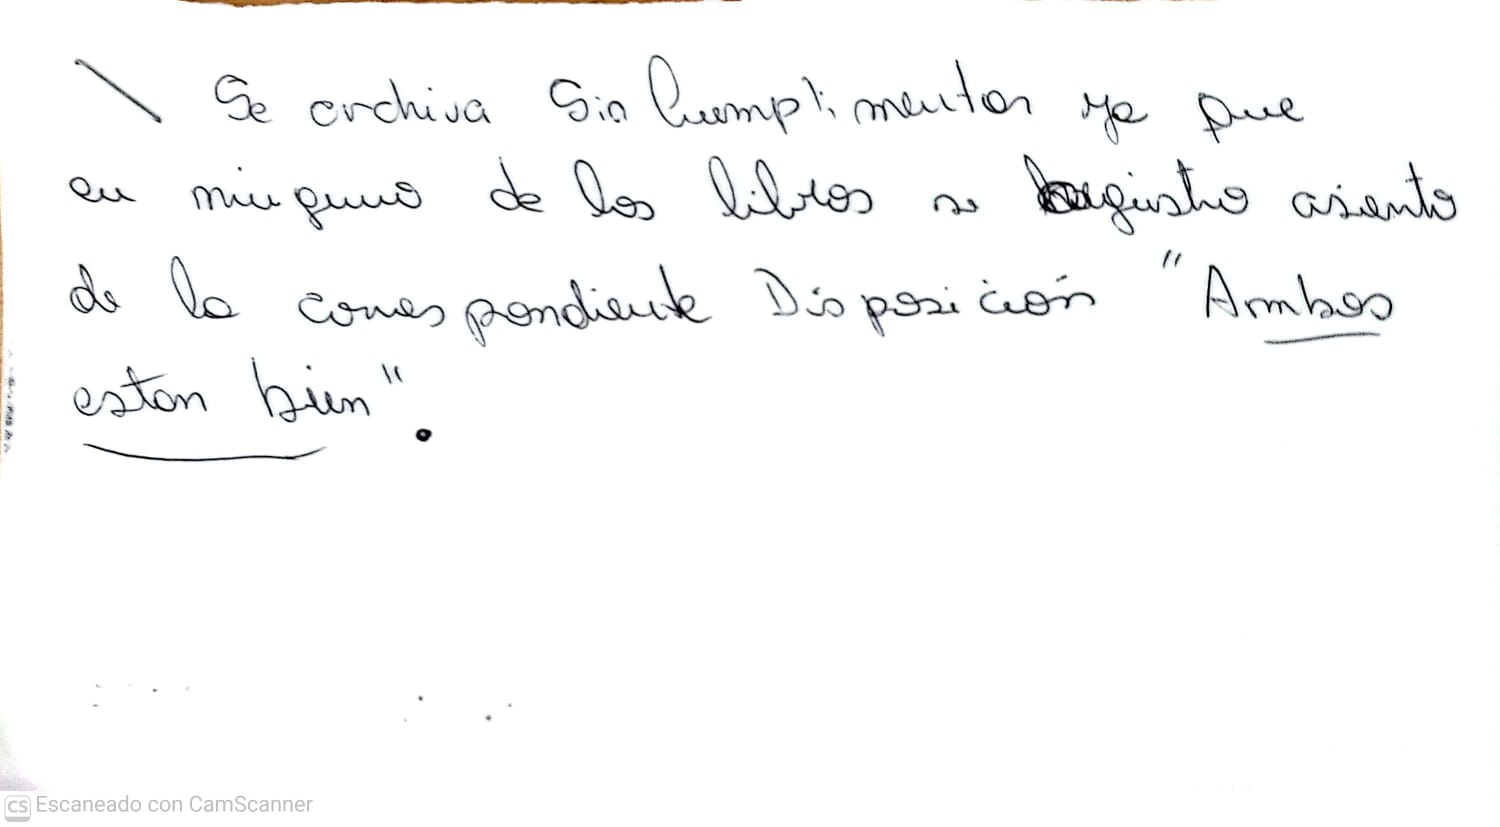 \ Se archiva Sin Cumplimentar ya que
en ninguno de los libros se registro asiento
de la correspondiente Disposición "Ambos
estan bien".
CS Escaneado con CamScanner